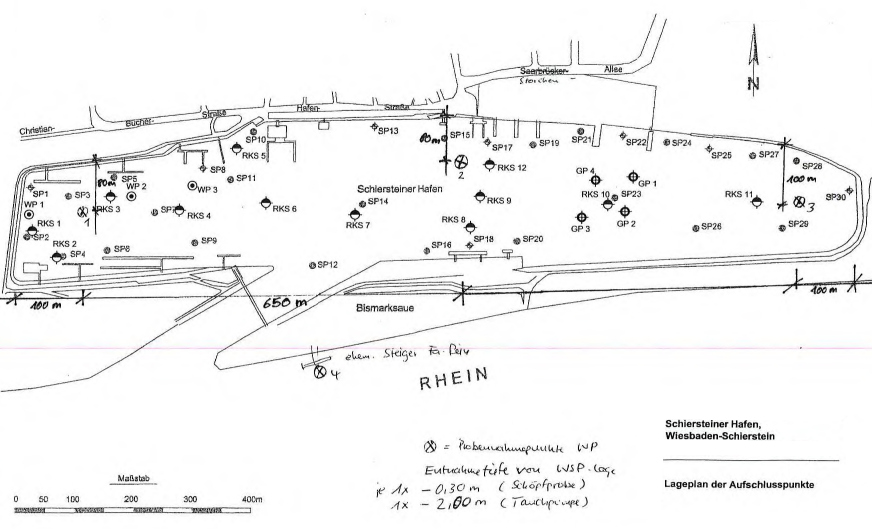 Saarbrücker- Allee
Storchen
N
Christian-
Bücher-
Straße
Hafen-
Straße
SP10
SP13
80m
SP15
SP17
SP19
SP21
SP22
SP24
SP25
SP27
SP28
RKS 5
SP8
RKS 12
2
80m
SP5
WP 2
WP 3
SP11
Schiersteiner Hafen
GP 4
GP 1
100 m
SP1
SP3
WP 1
1
RKS 3
SP7
RKS 4
RKS 6
SP14
RKS 7
RKS 9
RKS 10
SP23
RKS 11
3
SP30
RKS 1
SP2
RKS 8
GP 3
GP 2
SP26
SP29
RKS 2
SP4
SP6
SP9
SP16
SP18
SP20
SP12
100 m
650 m
Bismarksaue
100 m
ehem. Steiger Fa.
4
RHEIN
= Probenahmepunkte WP
Entnahmetiefe von WSP-Lage
je 1x - 0,30 m (Schöpfprobe)
1x - 2,00 m (Tauchpumpe)
Schiersteiner Hafen,
Wiesbaden-Schierstein
Lageplan der Aufschlusspunkte
Maßstab
0 50 100 200 300 400m